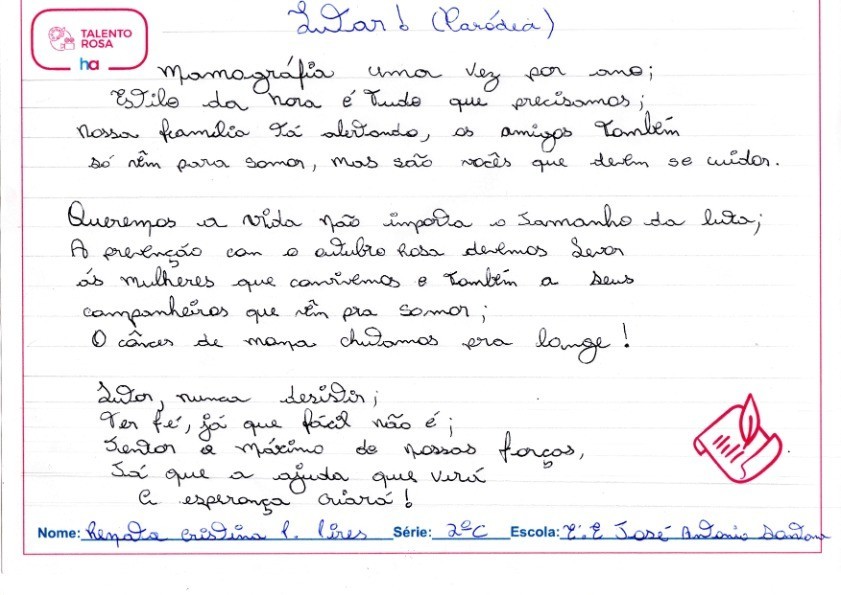 Lutar! (Paródia)
TALENTO
ROSA
ha
Mamográfia uma vez por ano;
Estilo da nora é tudo que precisamos;
Nossa família tá alertando, os amigos também
só vêm para somar, mas são vocês que devem se cuidar.
Queremos a vida não importa o tamanho da luta;
A prevenção com o outubro Rosa devemos levar
ás mulheres que convivemos e também a seus
companheiros que vêm pra somar;
O câncer de mama chutamos pra longe!
Lutar, nunca desistir;
Ter fé, já que fácil não é;
Tentar o máximo de nossas forças,
Já que a ajuda que virá
a esperança criará!
Nome: Renata Cristina P. Pires Série: 2ºC Escola: E.E José Antonio Santana